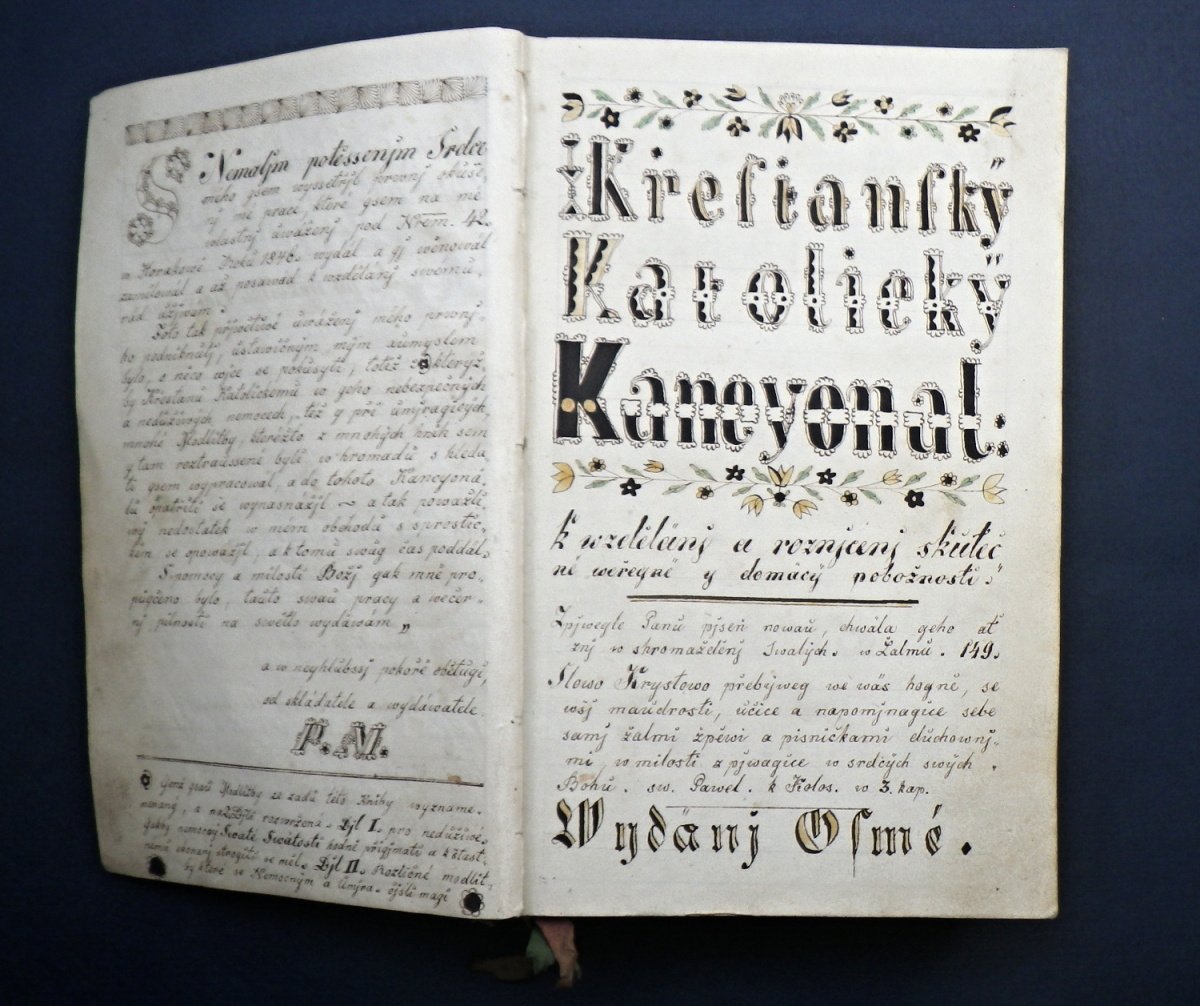 S Nemalým potěssenjm Srdce
mého gsem wyssetřyl prwnj obtjže,
ný mé prace, které gsem na mé
wlastný úwáženj pod Křem. 42.
w Horakowě Roku 1846. wydal a gý wěnowal
zamilowal a až posawad k wzdělánj swému,
rád užjwám.
Toto tak přjwětiwé uwáženj mého prwnj-
ho podniknutj, ustawičným mým aumyslem
bylo, o něco wjce se pokusyti, totéž
by Křestanu Katolickému w geho nebezpečných
a nedužiwých nemocech, též y při úmjragjcých,
mnohé Modlitby, kteréžto z mnohých knih sem
y tam roztraussené byli w hromadu s hleda
ti gsem wypracowal, a do tohoto Kancyoná,
lu opatřiti se wynasnážjl ~ a tak powážli
wý nedostatek w mém obchodu s sprostič-
kem se opowážjl, a k tomu swůg čas poddal.
S pomocy a milosti Božj gak mně pro,,
půgčeno bylo, tauto swau pracy a wečer-
nj pilnosti na swětlo wydáwám „
a w neyhlubssj pokoře obětugi,
od skládatele a wydáwatele.
P. M.
Gjená gsau Modlitby ze zadu této Knihy wyzname-
nowaný, a rozwržená. Djl I. pro nedužiwé,
gakby nemocný Swaté Swátosti hodně přigjmati a k štast,
nému skonánj strogiti se měl. Djl II. Roztičné modlit,
by které se Nemocným a Umjra- gjstě magj
Křestianský
Katolický
Kancyonal:
k wzdělánj a roznjcenj skuteč
né weřegné y domácý pobožnosti.
Zpjwegte Panu pjseň nowau, chwála geho at
znj w shromažděnj Swatých. w Žalmu. 149.
Slowo Krystowo přebýweg we wás hogně, se
wšj maudrosti, učjce a napomjnagjce sebe
samj žalmi zpěwi a pisničkami duchownj-
mi, w milosti zpjwagjce w srdcých swých
Bohu. sw. Pawel. k Kolos. w 3. kap.
Wydánj Osmé.